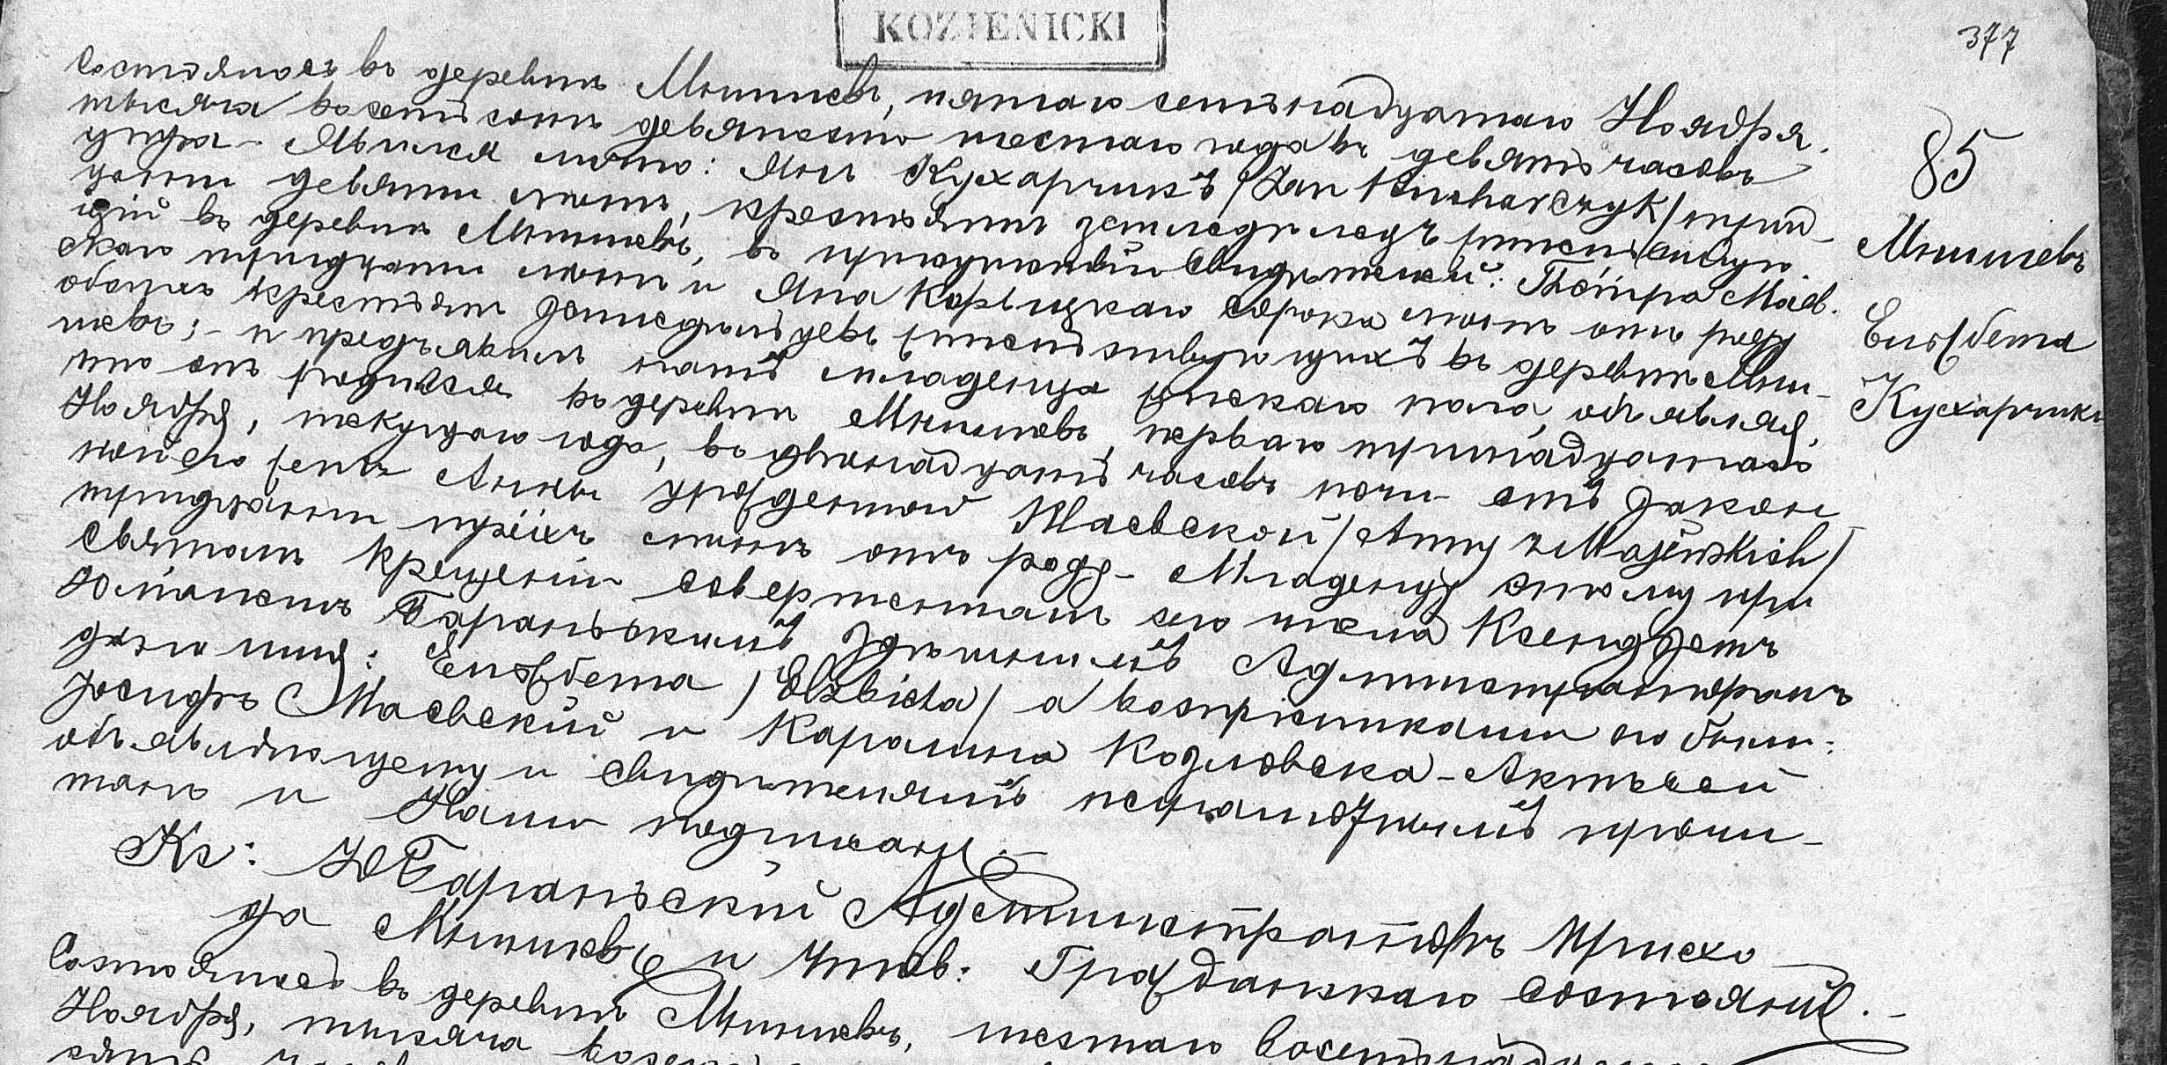 KOZIENICKI
377
Состоялось въ деревнѣ Мнишевъ, пятаго семнадцатаго Ноября
тысяча восемьсотъ девяносто шестаго года въ девять часовъ
утра – Явился лично: Янъ Кухарчикъ /Jan Kucharczyk/ трид-
цати девяти лѣтъ, крестьянинъ земледѣлецъ жительствую-
щій въ деревнѣ Мнишевъ, въ присутствіи свидѣтелей: Петра Маев-
скаго тридцати лѣтъ и Яна Корыцкаго сорока лѣтъ отъ роду
обоихъ крестьянъ земледѣльцевъ жительствующихъ въ деревнѣ Мни-
шевъ; – и предъявилъ намъ младенца женскаго пола, объявляя,
что онъ родился въ деревнѣ Мнишевъ, перваго тринадцатаго
Ноября, текущаго года, въ двенадцать часовъ ночи – отъ закон-
ной его жены Анны урожденной Маевской /Anny z Majewskich/
тридцати трёхъ лѣтъ отъ роду – Младенцу этому при
Святомъ Крещеніи совершенномъ сего числа Ксендзомъ
Юліаномъ Бараньскимъ здѣшнимъ Администраторомъ
дано имя: Елжбета /Elżbieta/ а воспріемниками его были:
Іосифъ Маевскій и Каролина Козловска – Актъ сей
объявляющему и свидѣтелямъ неграмотнымъ прочи-
танъ и Нами подписанъ. –
Кс: Ю Бараньскій Администраторъ Прихо
да Мнишевъ и Чинов: Гражданскаго Состоянія. –
85
Мнишевъ
Елжбета
Кухарчикъ
Состоялось въ деревнѣ Мнишевъ, шестаго
Ноября, тысяча